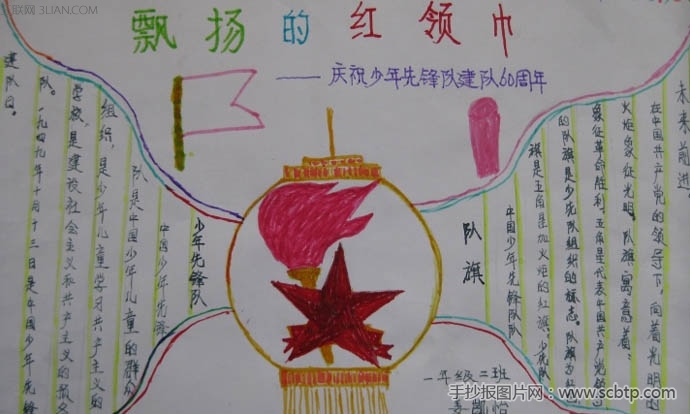 联网 3LIAN.COM
飘扬的红领巾
——庆祝少年先锋队建队60周年
少年先锋队
中国少年先锋
队是中国少年儿童的群众
组织,是少年儿童学习共产主义的
学校,是建设社会主义和共产主义的预备
队。一九四九年十月十三日是中国少年先锋
建队日。
队旗
中国少年先锋队队
旗是五角星加火炬的红旗。少先队
的队旗是少先队组织的标志。队旗为红
象征革命胜利,五角星代表中国共产党的
火炬象征光明。队旗寓意着:
在中国共产党的领导下,向着光明的
未来前进
一年级二班
手抄报图片网:www.scbtp.com